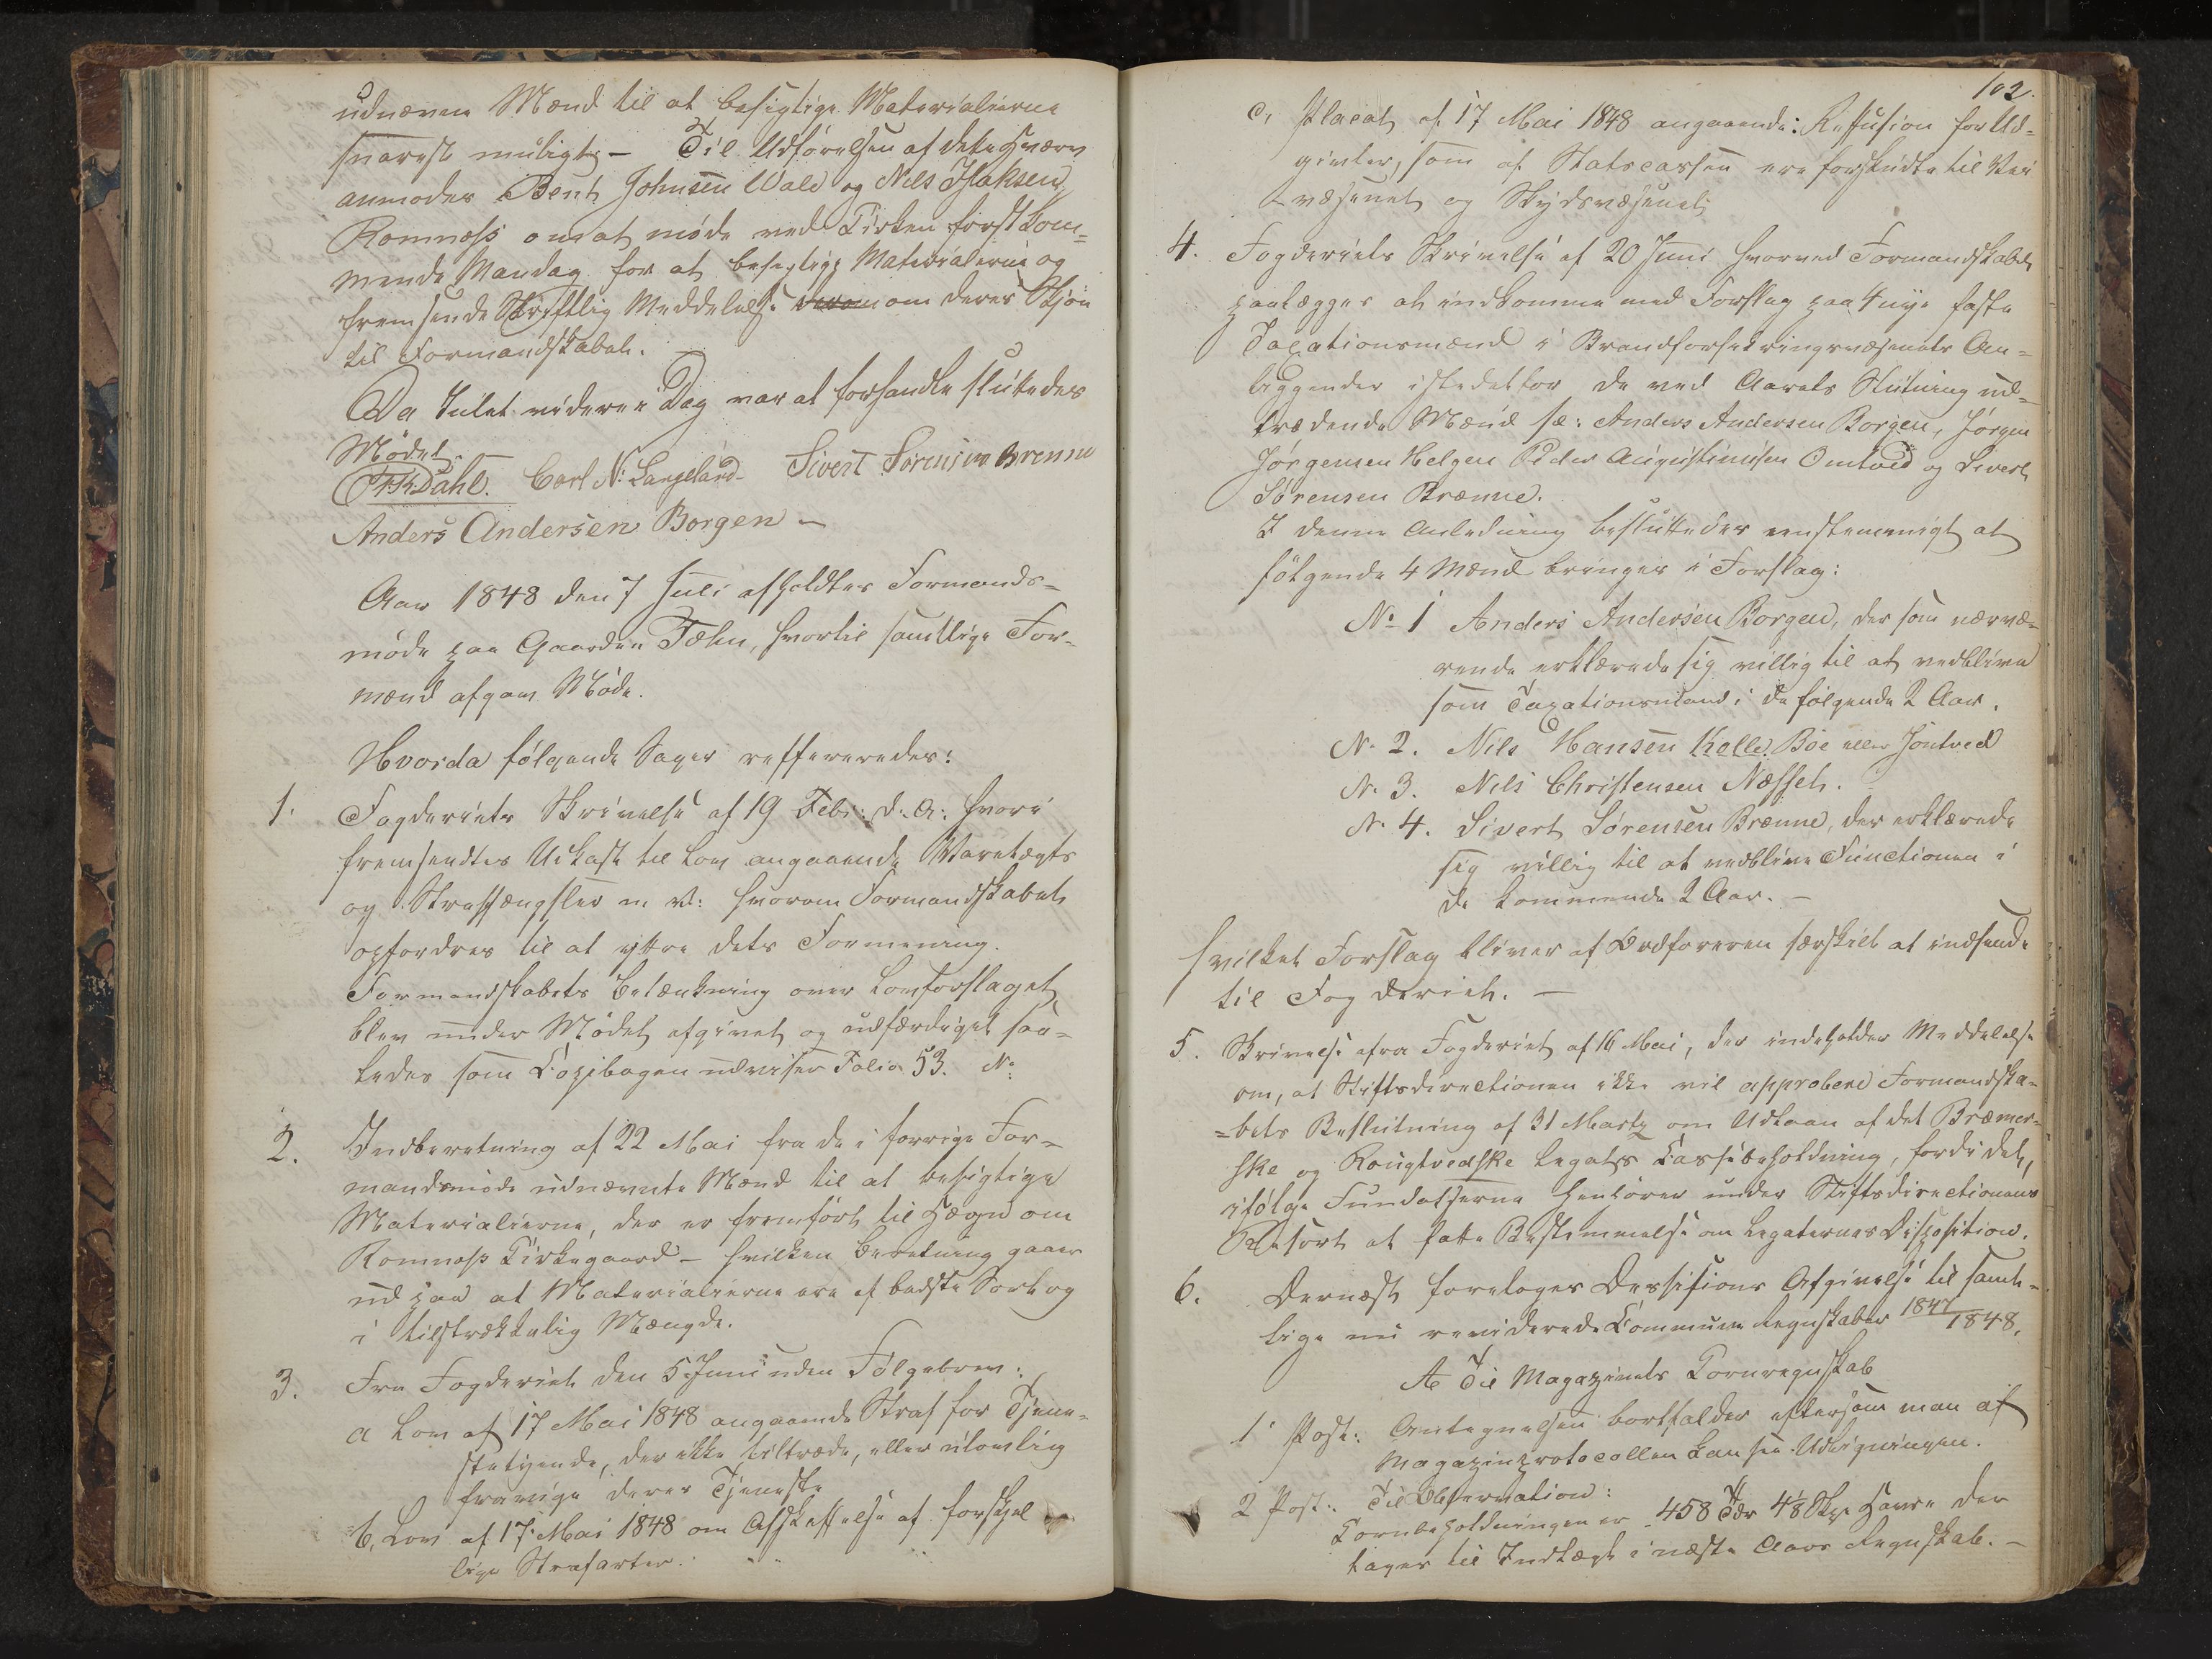 udnævne Mænd til at besigtige Materialierne
snarest muligt – Til Udførelsen af dette Hværv
anmodes Bent Johnsen Wale og Nils Isaksen
Romnæss om at møde ved Kirken førstkom=
mende Mandag for at besigtige Materialerne og
fremsende Skriftlig Meddelelse om deres Skjøn
til Formandskabet.
Da Intet videre i Dag var at forhandle sluttedes
Mødet.
Dahl. Carl N: Langeland – Sivert Sørensen Brenne
Anders Andersen Borgen –
Aar 1848 den 7 Juli afholdtes Formands-
møde paa Gaarden Fæhn, hvortil samtlige For-
mænd afgav Møde.
Hvorda følgende Sager reffereredes:
1. Fogderiets Skrivelse af 19 Feb: d. A: hvori
fremsendtes Udkast til Lov angaaende Varetægts
og Straffængsler m. v: hvorom Formandskabet
opfordres til at yttre dets Formening.
Formandskabets Betænkning over Lovforslaget
blev under Mødet afgivet og udfærdiget saa=
ledes som Copibogen udviser Folio 53. N:
2. Indberetning af 22 Mai fra de i forrige For=
mandsmøde udnævnte Mænd til at besigtige
Materialierne, der er fremført til Hægn om
Romnæss Kirkegaard – hvilken Beretning gaaer
ud paa at Materialierne ere af bedste Sort og
i tilstrækkelig Mængde.
3. Fra Fogderiet den 5 Juni uden Følgebrev:
a Lov af 17 Mai 1848 angaaende Straf for Tjene-
stetyende, der ikke tiltræde, eller ulovlig
fravige deres Tjeneste
b, Lov af 17 Mai 1848 om Afskaffelse af forskjel
lige Strafarter.
102.
c, Placat af 17 Mai 1848 angaaende: Reffusion for Ud=
givter, som af Statscassen ere forskudte til Vei
væsenet og Skydsvæsenet
4. Fogderiets Skrivelse af 20 Juni hvorved Formandskabet
paalægges at indkomme med Forslag paa 4 nye faste
Taxationsmænd i Brandforsikringsvæsenets An=
liggender istedetfor de ved Aarets Slutning ud=
trædende Mænd sc: Anders Andersen Borgen, Jørgen
Jørgensen Helgen Peder Augustinusen Omtved og Sivert
Sørensen Brænne.
I denne Anledning besluttedes eenstemmigt at
følgende 4 Mænd bringes i Forslag:
No 1 Anders Andersen Borgen, der som nærvæ=
rende erklærede sig villig til at vedblive
som Taxationsmand i de følgende 2 Aar.
N. 2. Nils Hansen Kolle Bøe eller Jontved
N. 3. Nils Christensen Næsset.
N. 4. Sivert Sørensen Brænne, der erklærede
sig villig til at vedblive Functionen i
de kommende 2 Aar. –
hvilket Forslag bliver af Ordføreren særskilt at indsende
til Fogderiet. –
5. Skrivelse fra Fogderiet af 16 Mai, der indeholder Meddelelse
om, at Stiftsdirectionen ikke vil approbere Formandska-
=bets Beslutning af 31 Marts om Udlaan af det Bræmer=
ske og Rougtvedske Legats Cassebeholdning, fordi det,
ifølge Fundatserne henhører under Stiftsdirectionens
Resort at fatte Bestemmelse om Legaternes Disposition.
6. Dernæst foretoges Dessisions Afgivelse til samt=
lige nu reviderede Commune Regnskaber 1847/1848.
A Til Magazinets Kornregnskab
1 Post: Antegnelsen bortfalder eftersom man af
Magazinprotocollen kan see Udligningen.
2 Post: Til Observation:
Kornbeholdningen er 458 Tdr 4 1/8 Skp Havre der
tages til Indtægt i næste Aars Regnskab. –